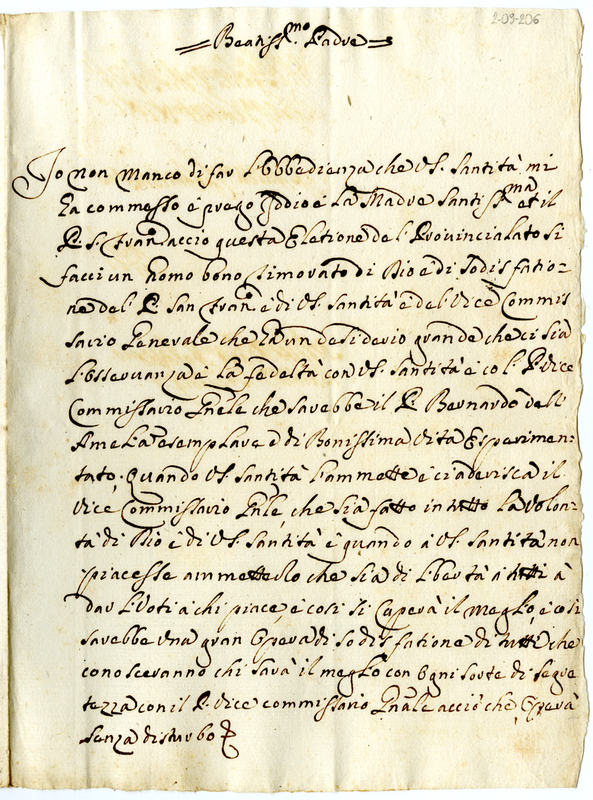 2-09-206
Beatiss.mo Padre
Io non manco di far l'obbedienza che V.S. Santità mi
ha commesso e prego Iddio e la Madre Santiss.ma et il
P. S. Fran. acciò questa Eletione del Provincialato si
facci un homo bono timorato di Dio e di sodisfatio-
ne del P. San Fran.co e di V.S. Santità e del Vice Commis
sario Generale che ha un desiderio grande che ci sia
l'osservanza e la fedeltà con V.S. Santità e co l. P. Vice
Commissario Gnãle che sarebbe il P. Bernardo dell'
Amelia esemplare e di Bonissima vita esperimen=
tato, quando V.S. Santità l'ammette e ci aderisca il
Vice Commissario Gnãle, che sia fatto in tutto la volon-
tà di Dio e di V.S. Santità e quando à V.S. Santità non
piacesse ammetterlo che sia di libertà a tutti à
dar l voti a chi piace, e così si caperà il meglio, e così
sarebbe una gran opera di sodisfatione di tutti che
conosceranno chi sarà il meglio con ogni sorte di segre
tezza con il P. Vice commissario Gnãle acciò che, operà
senza disturbo